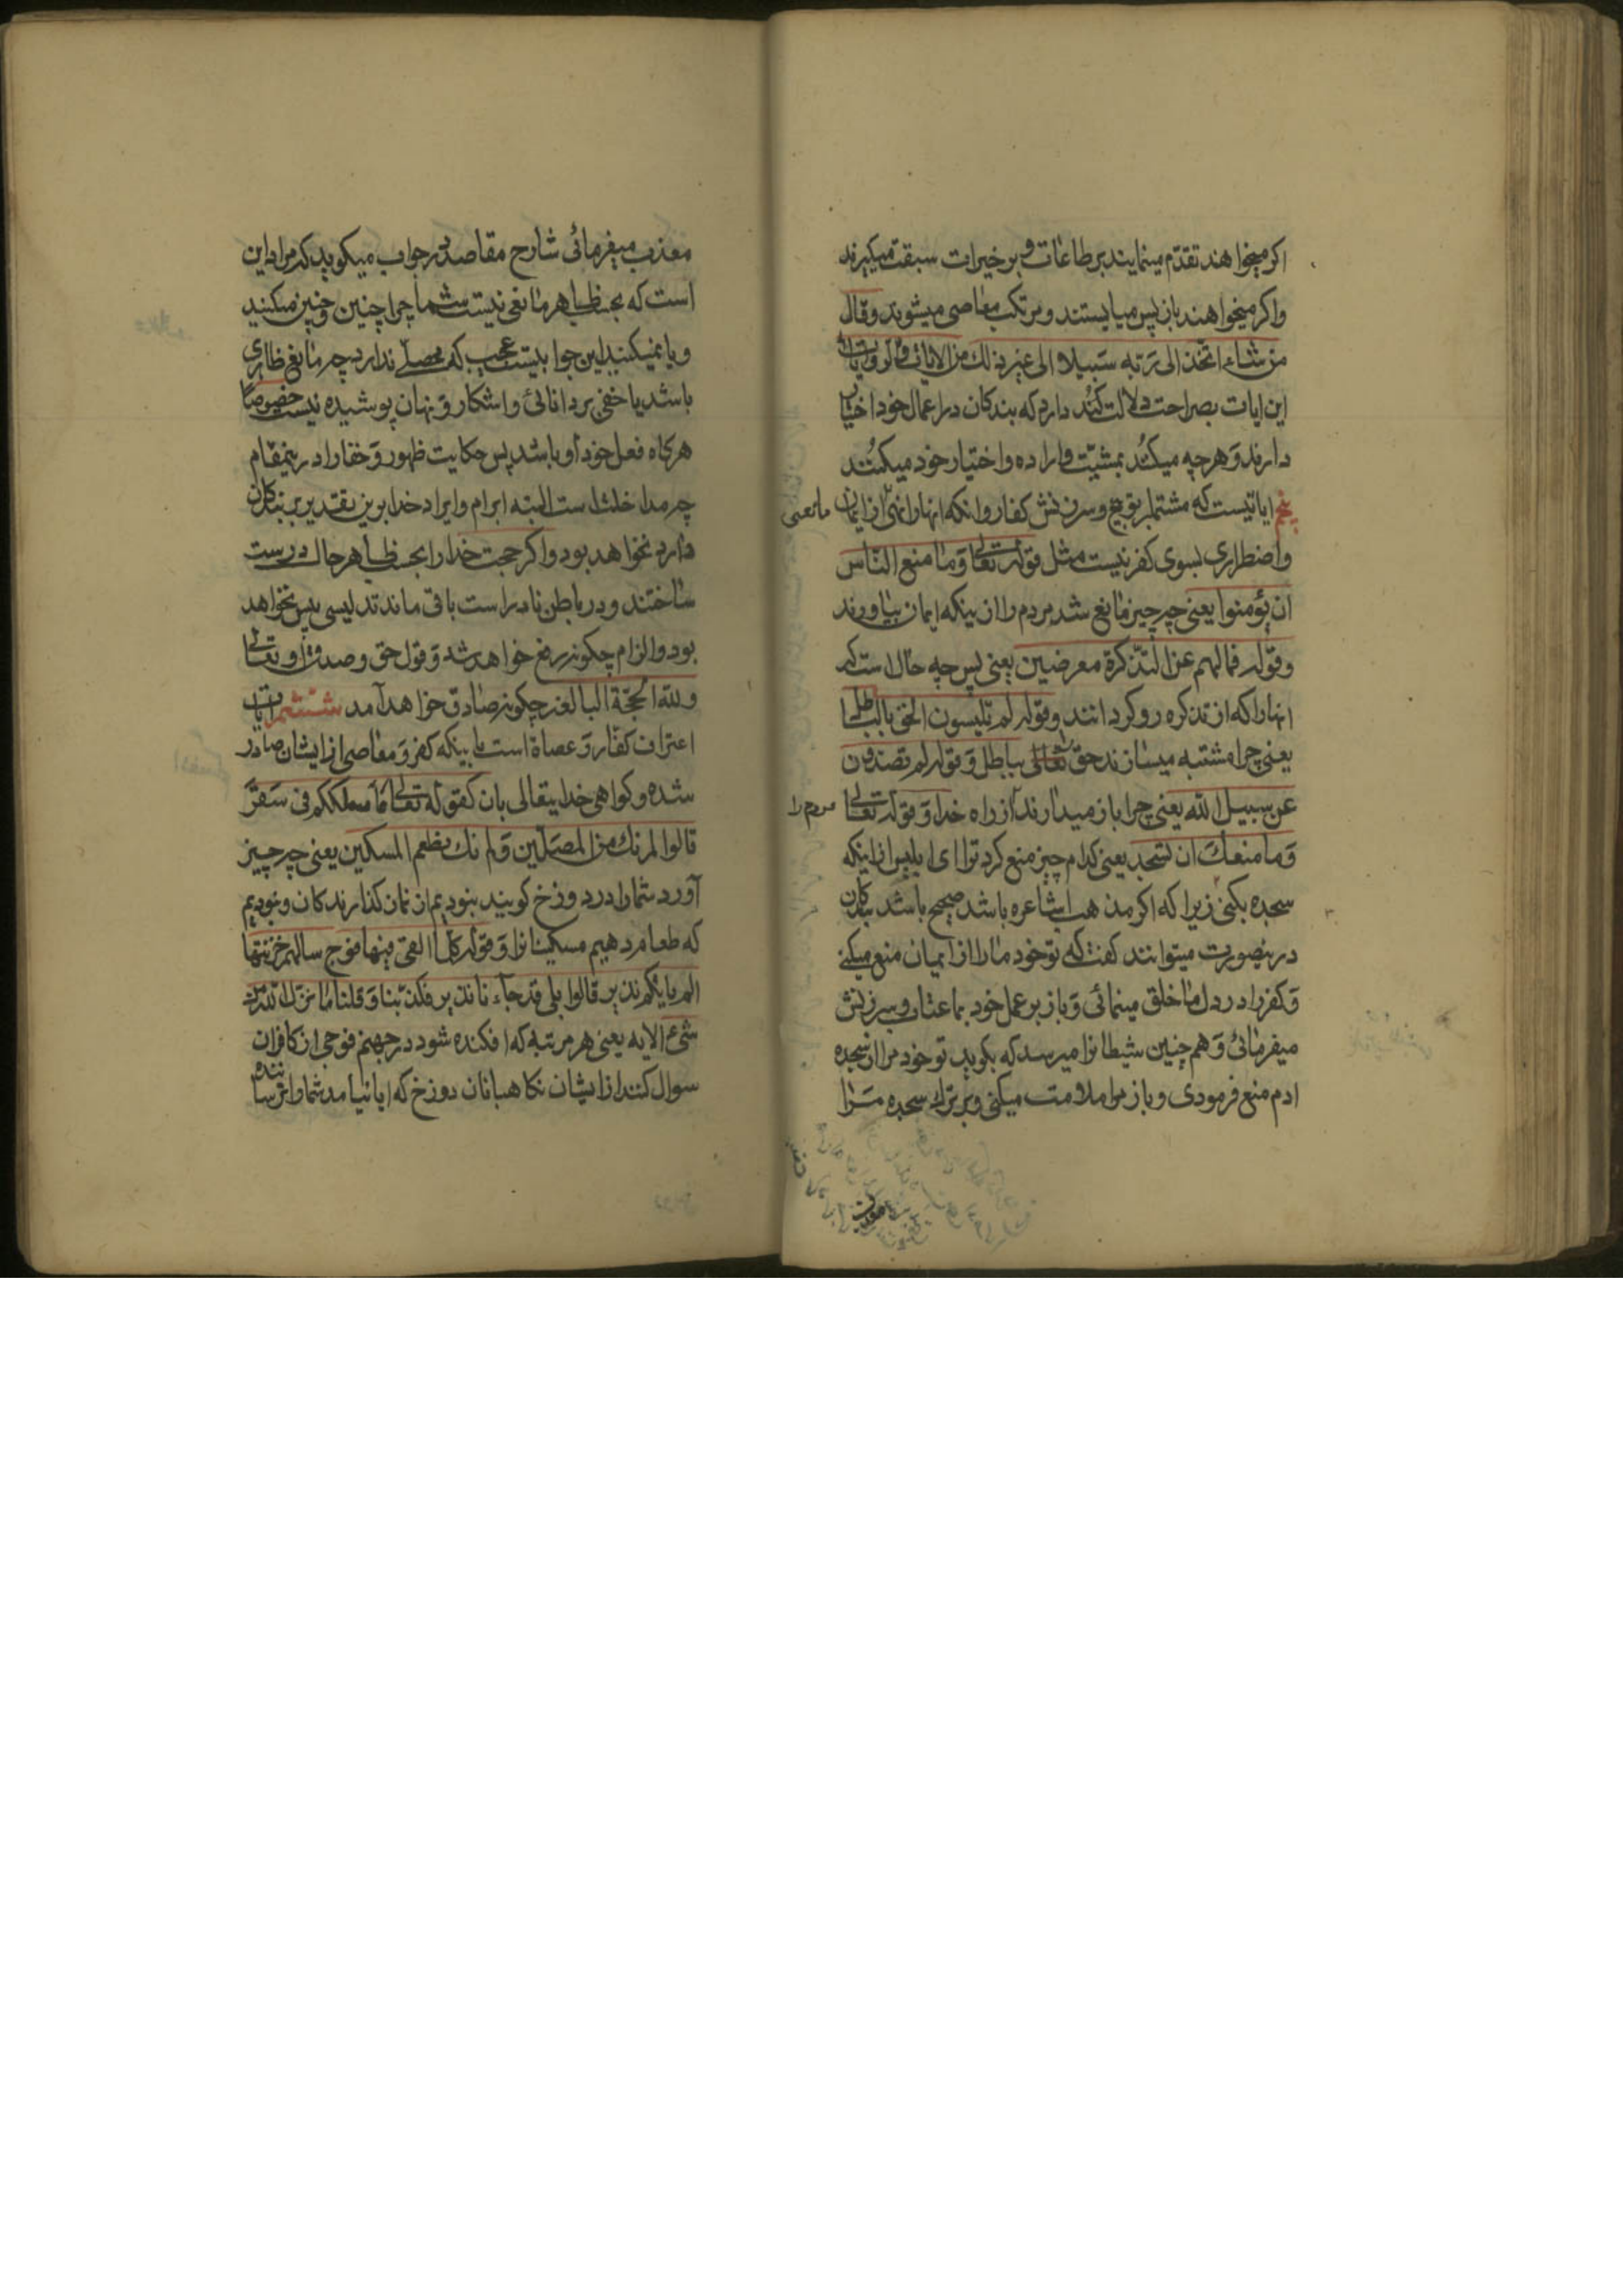 اکر میخواهند تقدّم مینمایند بر طاعات و بر خیرات سبقت میکیرند
واکر میخواهند باز پس میایستند و مرتکب معاصی میشوند وقال
من شاء اتّخذ الی ربّه سبیلا الی غیر ذلك من الایات
این ایات بصراحت دلالت کند دارد که بندکان در اعمال خود اختیار
دارند وهر چه میکنند بمشیّت واراده واختیار خود میکنند
پنجم ایاتیست که مشتمل بر توبیخ وسرزنش کفار وانکه انها را مانعی از ایمان
واضطراری بسوی کفر نیست مثل قوله تعالی وما منع النّاس
ان یؤمنوا یعنی چه چیز مانع شد مردم را از ینکه ایمان بیاورند
وقوله فما لهم عن التّذکرة معرضین یعنی پس چه حال است که
انها را که از تذکره رو کردانند وقوله لم تلبسون الحقّ بالباطل
یعنی چرا مشتبه میسازند حق تعالی بباطل وقوله لم تصدّون
عن سبیل الله یعنی چرا باز میدارند مردم را از راه خدا وقوله تعالی
وما منعك ان تسجد یعنی کدام چیز منع کرد ترا ای ابلیس از اینکه
سجده بکنی زیرا که اکر مذهب اشاعره باشد صحیح باشد بندکان
درینصورت میتوانند کفت که تو خود ما را از ایمان منع میکنی
وکفر را در دل ما خلق مینمائی وباز بر عمل خود بما عتاب وسرزنش
میفرمائی وهم چنین شیطانرا میرسد که بکوید تو خود مرا از سجده
ادم منع فرمودی وباز مرا ملامت میکنی وبر ترك سجده مرا
معذب میفرمائی شارح مقاصد در جواب میکوید که مراد این
است که بحسب ظاهر مانعی نیست شما چرا چنین وچنین میکنید
ویا نمیکنید این جوابیست عجب که محصلی ندارد چه مانع ظاهری
باشد یا خفی بر دانائی واشکار ونهان پوشیده نیست خصوصا
هرکاه فعل خود او باشد پس حکایت ظهور وخفا را درینمقام
چه مداخلت است البته ابرام وایراد خدا برین تقدیر بر بندکان
دارد نخواهد بود واکر حجت خدا را بحسب ظاهر حال درست
ساختند ودر باطن نادراست باقی ماند تدلیسی پس نخواهد
بود والزام چکونه رفع خواهد شد وقول حق وصدق او تعالی
ولله الحجّة البالغه چکونه صادق خواهد آمد ششم ایات
اعتراف کفار وعصاة است باینکه کفر ومعاصی از ایشان صادر
شده وکواهی خدایتعالی بان کقوله تعالی ما سلککم فی سقر
قالوا لم نك من المصلّین ولم نك نطعم المسکین یعنی چه چیز
آورد شما را در دوزخ کویند نبودیم از نماز کذارندکان ونبودیم
که طعام دهیم مسکینانرا وقوله کلّما القی فیها فوج سالهم خزنتها
الم یاتکم نذیر قالوا بلی قد جاءنا نذیر فکذّبنا وقلنا ما نزّل الله من
شیء الایه یعنی هر مرتبه که افکنده شود در جهنم فوجی از کافران
سوال کنند از ایشان نکاهبانان دوزخ که ایا نیامد شما را ترساننده